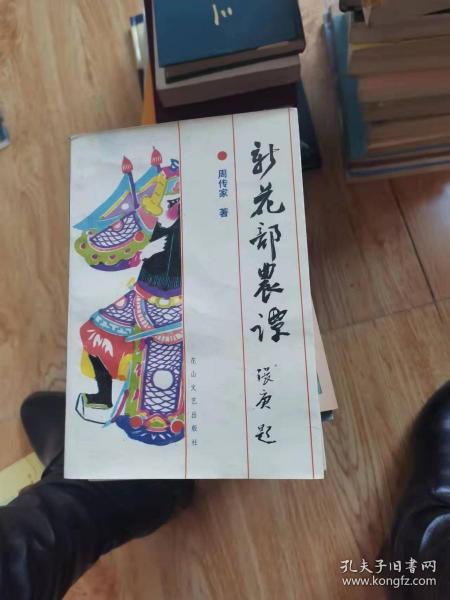 新花部農譚
张庚题
周传家 著
花山文艺出版社
孔夫子旧书网
www.kongfz.com